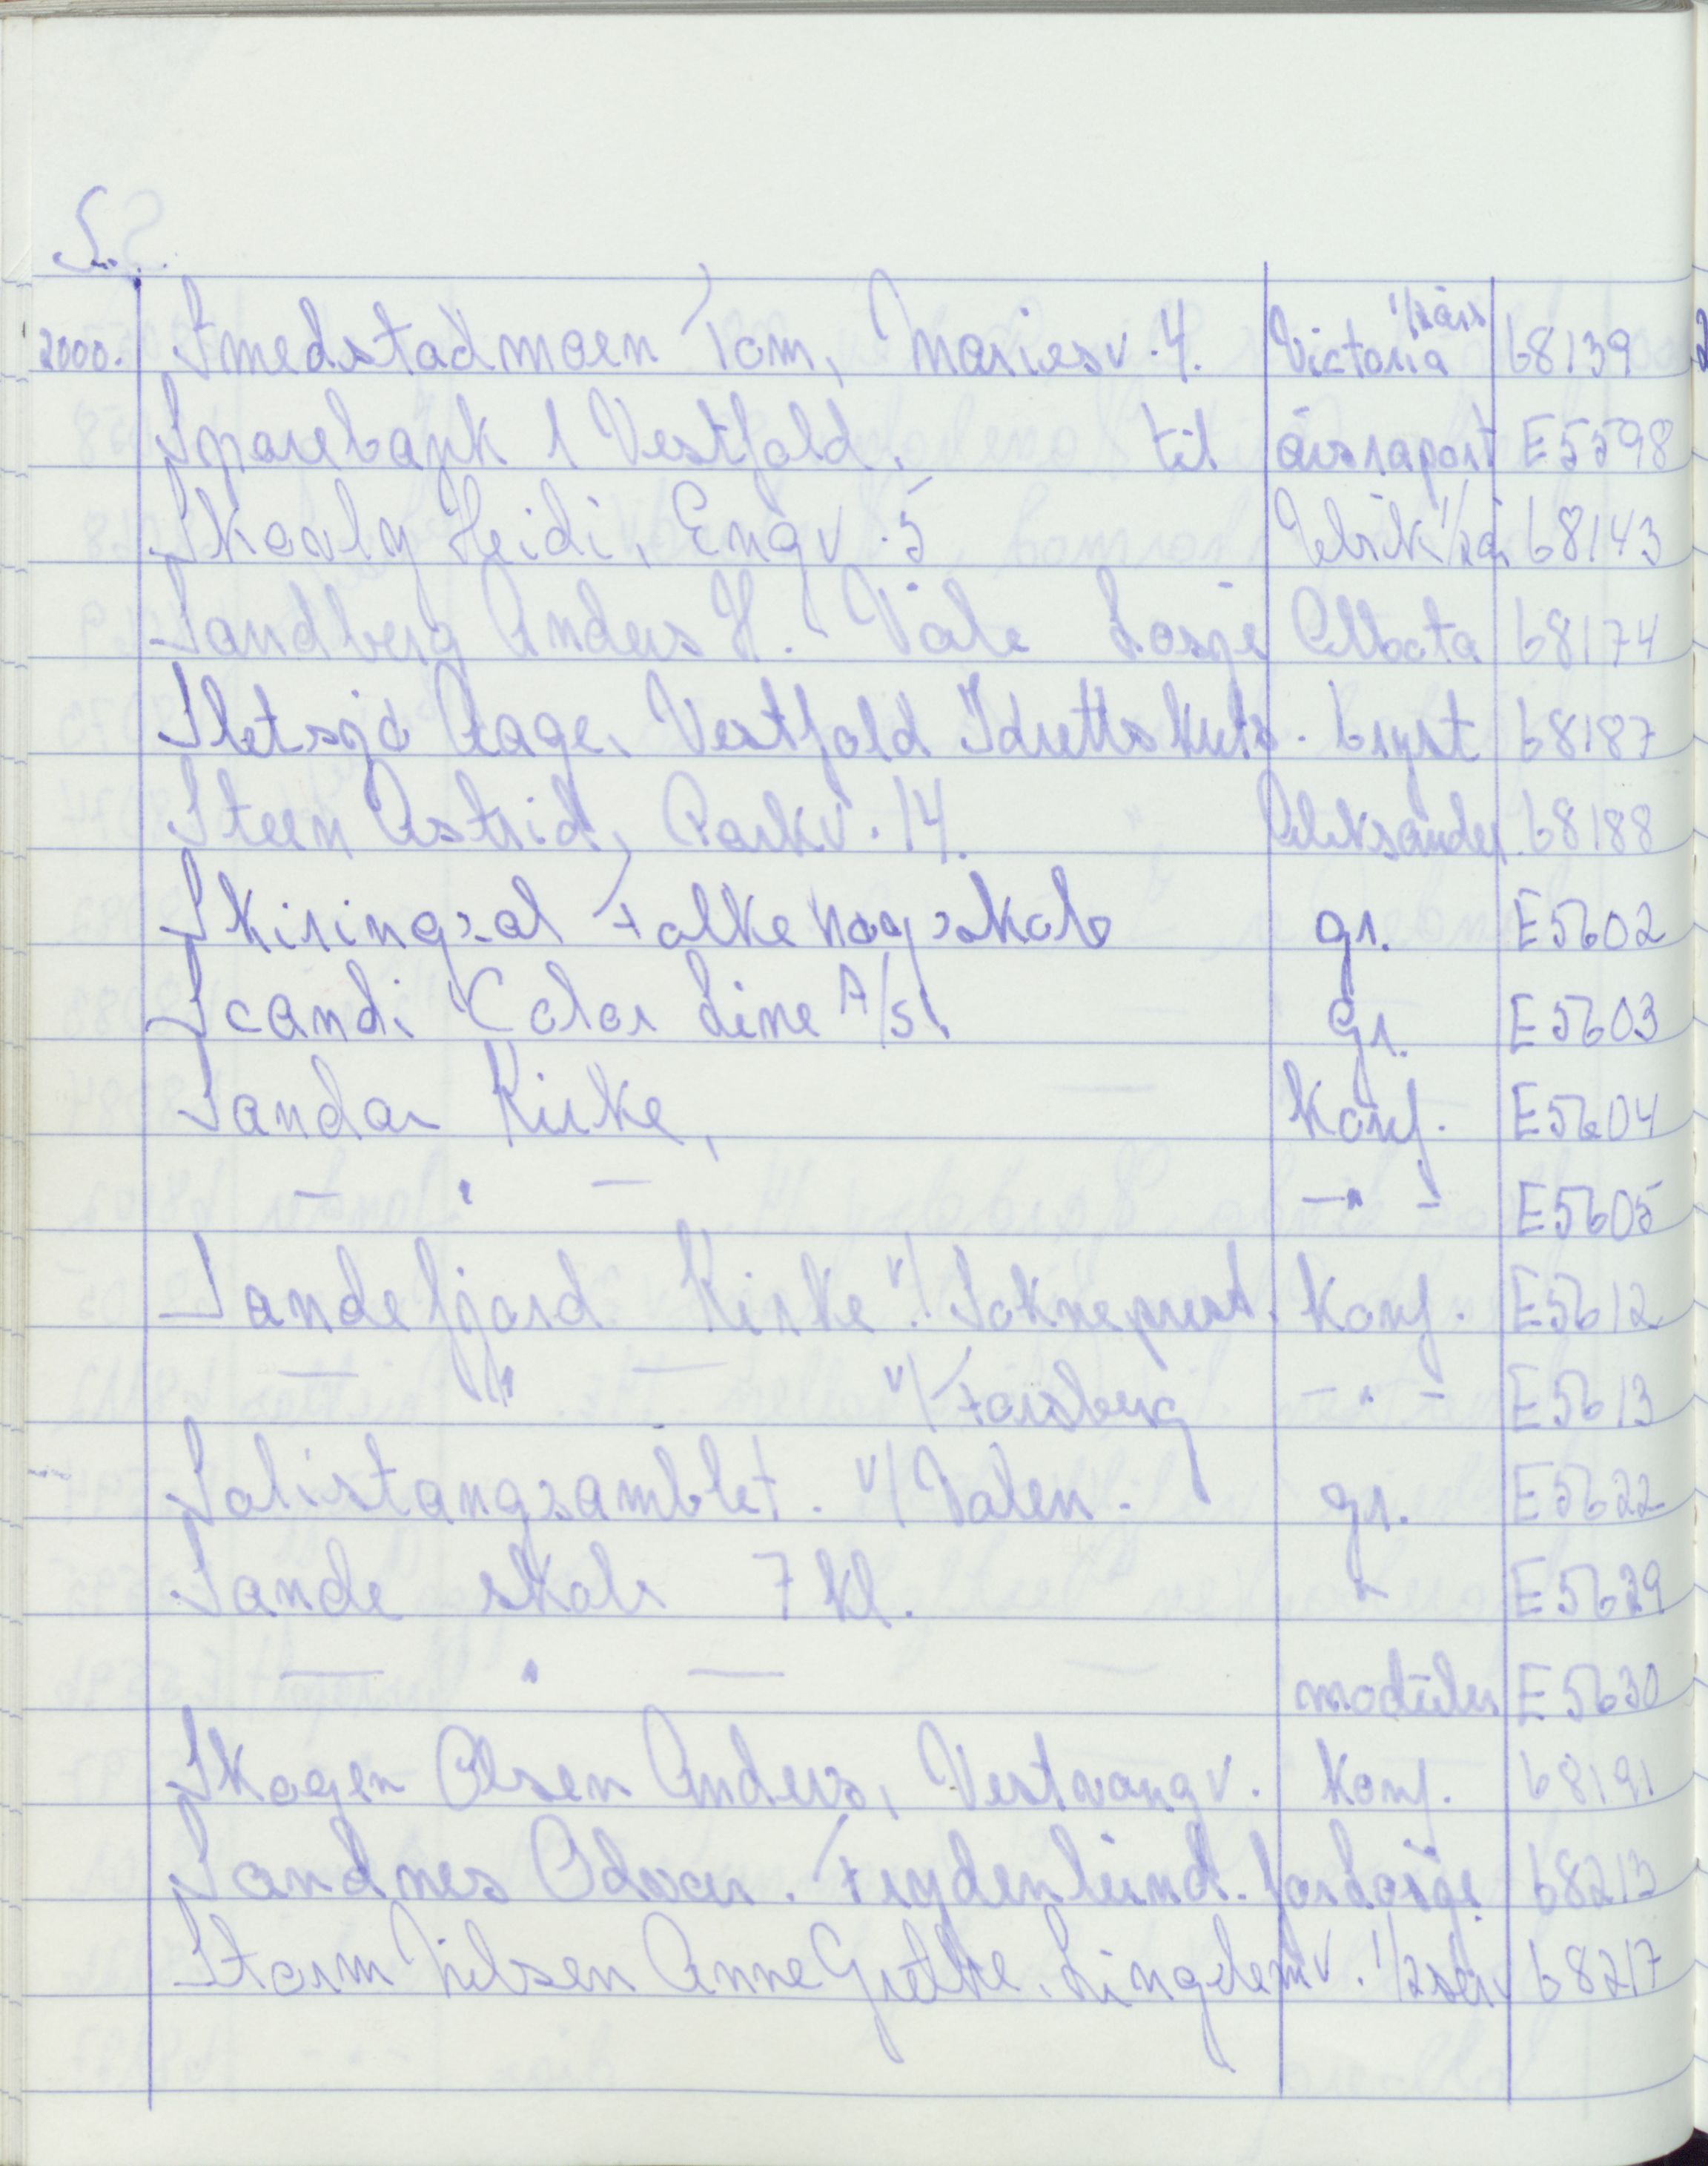 S.
2000. Smedstadmoen Tom, Mariesv. 4. Victoria 1/2 års 68139
Sparebank 1 Vestfold. til årsraport E5598
Skovly Heidi, Engv. 5 Ulrik 1/2 å, 68143
Sandberg Anders H. Våle Losje Albata 68174
Sletsjø Aage, Vestfold Idrettskrets. bryst 68187
Steen Astrid, Parkv. 14. Aleksander. 68188
Skiringsal Folkehøgskole gr. E5602
Scandi Color Line A/S. gr. E5603
Sandar Kirke, Konf. E5604
— " — — " — E5605
Sandefjord Kirke v/ Sokneprest. Konf. E5612
— " — v/ Forsberg — " — E5613
Solistangsamblet. v/ Valen. gr. E5622
Sande skole 7 kl. " E5629
— " — moduler E5630
Skogen Olsen Anders, Vestvangv. Konf. 68191
Sandnes Odvar. Frydenlund. 68213
Storm Nilsen Anne Grethe. Lingelemv. 68217